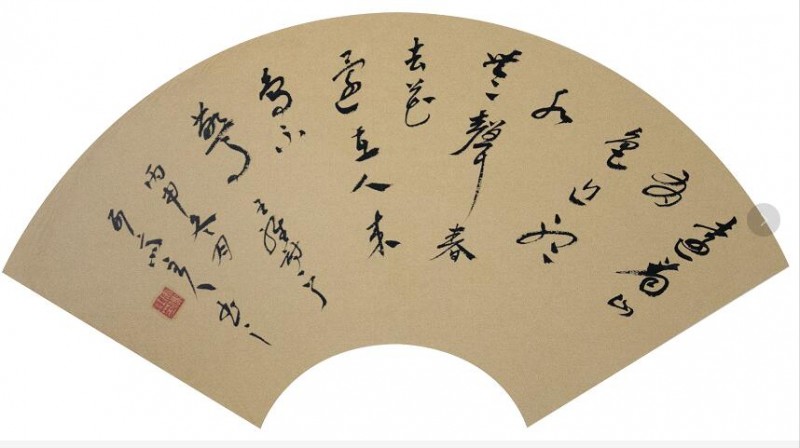 遠看山
有
色近聽
水
無聲春
去花
還在人來
鳥不
驚
王維詩一首
丙申冬月